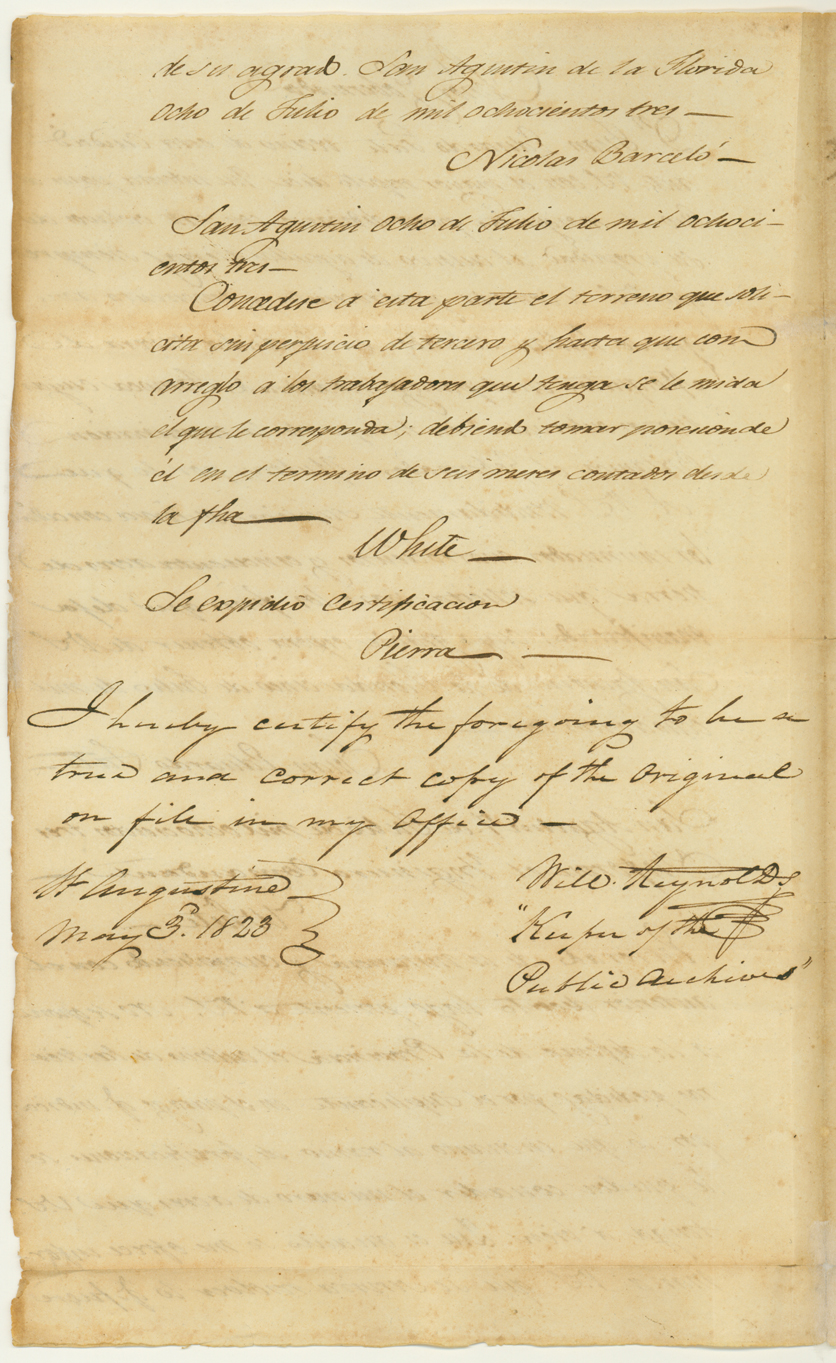 de su agrado. San Agustin de la Florida
ocho de Julio de mil ochocientos tres —
Nicolas Barceló —
San Agustin ocho de Julio de mil ochoci-
entos tres —
Concedese a esta parte el terreno que soli-
cita sin perjuicio de tercero y hasta que con
arreglo á los trabajadores que tenga se le mida
el que le corresponda; debiendo tomar posesion de
él en el termino de seis meses contados desde
la fha —
White —
Se expidio certificacion
Pierra — —
I hereby certify the foregoing to be a
true and correct copy of the original
on file in my office —
St Augustine
May 3d. 1823
Will. Reynolds
"Keeper of the
Public Archives"